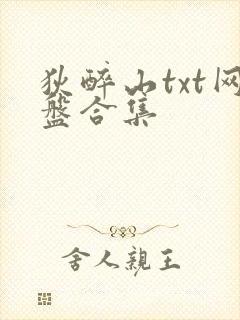 狄醉山txt网
盘合集
舍人亲王